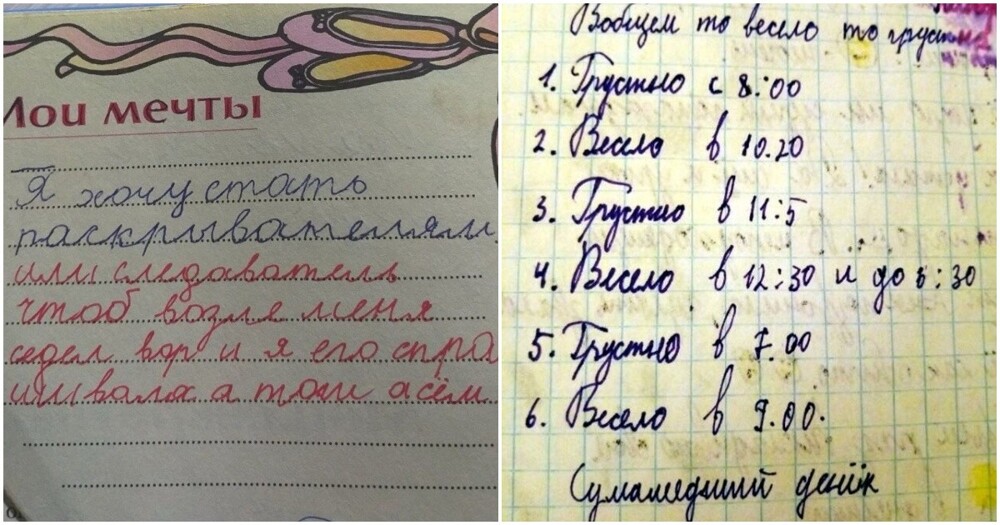 Мои мечты
Я хочу стать
раскрывателям
или следаватель
чтоб возле меня
седел вор и я его спра
шивала а том а сём
Вобщем то весело то грустно
1. Грустно с 8:00
2. Весело в 10.20
3. Грустно в 11:5
4. Весело в 12:30 и до 6:30
5. Грустно в 7.00
6. Весело в 9.00.
Сумашедший денёк